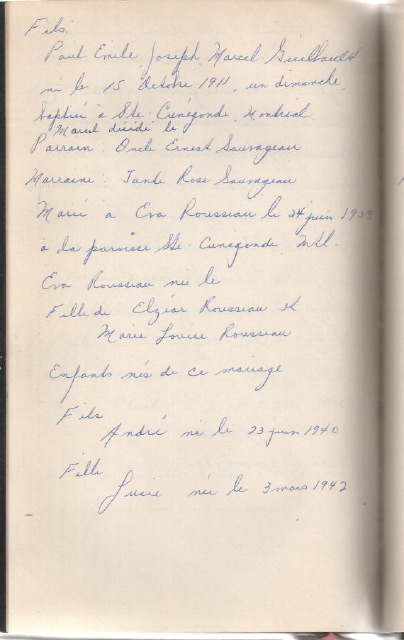 Fils.
Paul Emile, Joseph, Marcel Guilbault
né le 15 Octobre 1911, un dimanche,
baptisé à Ste. Cunégonde, Montréal.
Marcel décédé le
Parrain: Oncle Ernest Sauvageau
Marraine: Tante Rose Sauvageau
Marié à Eva Rousseau le 24 juin 1939
à la paroisse Ste. Cunégonde Mtl.
Eva Rousseau née le
Fille de Elzéar Rousseau et
Marie Louise Rousseau
Enfants nés de ce mariage
Fils
André né le 23 juin 1940
Fille
Lucie née le 3 mars 1942